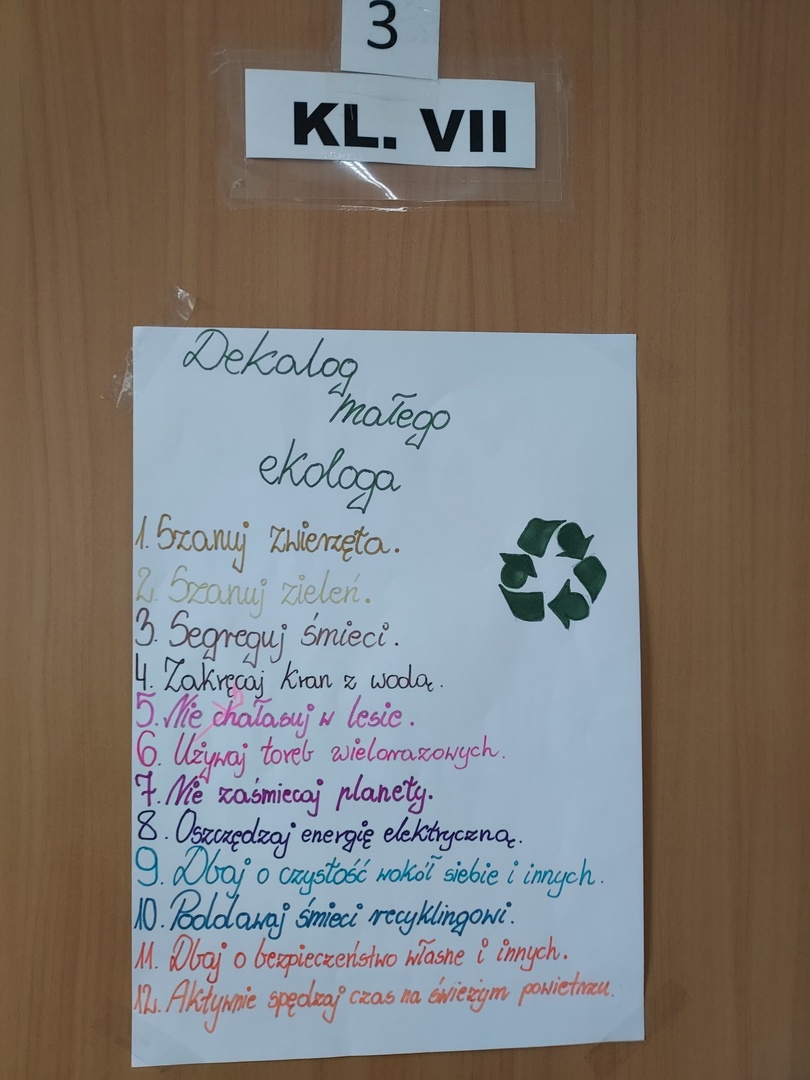 3
KL. VII
Dekalog
małego
ekologa
1. Szanuj zwierzęta.
2. Szanuj zieleń.
3. Segreguj śmieci.
4. Zakręcaj kran z wodą.
5. Nie hałasuj w lesie.
6. Używaj toreb wielorazowych.
7. Nie zaśmiecaj planety.
8. Oszczędzaj energię elektryczną.
9. Dbaj o czystość wokół siebie i innych.
10. Poddawaj śmieci recyklingowi.
11. Dbaj o bezpieczeństwo własne i innych.
12. Aktywnie spędzaj czas na świeżym powietrzu.